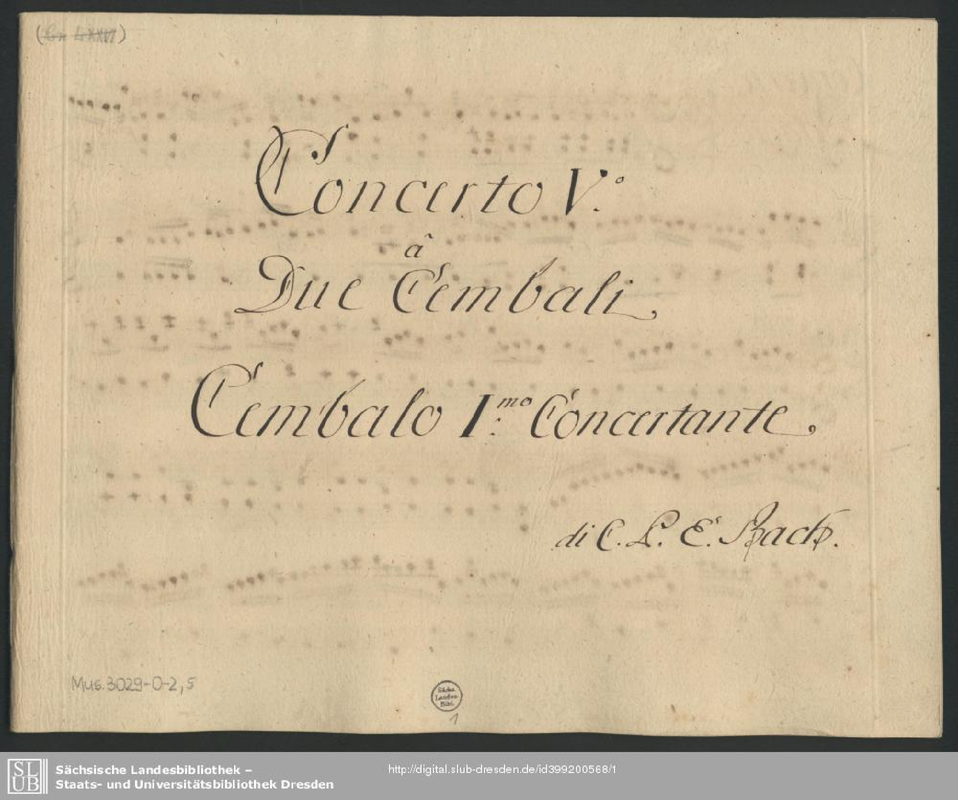 Concerto V.º
â
Due Cembali,
Cembalo I.mo Concertante,
di C. P. E. Bach.
Mus. 3029-O-2,5
Sächs.
Landes-
Bibl.
1
SLUB
Sächsische Landesbibliothek –
Staats- und Universitätsbibliothek Dresden
http://digital.slub-dresden.de/id399200568/1